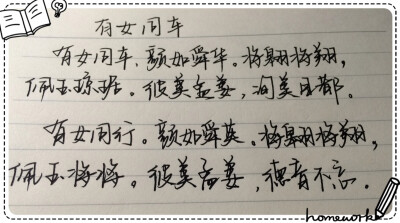 有女同车
有女同车，颜如舜华。将翱将翔，
佩玉琼琚。彼美孟姜，洵美且都。
有女同行，颜如舜英。将翱将翔，
佩玉将将。彼美孟姜，德音不忘。
homework